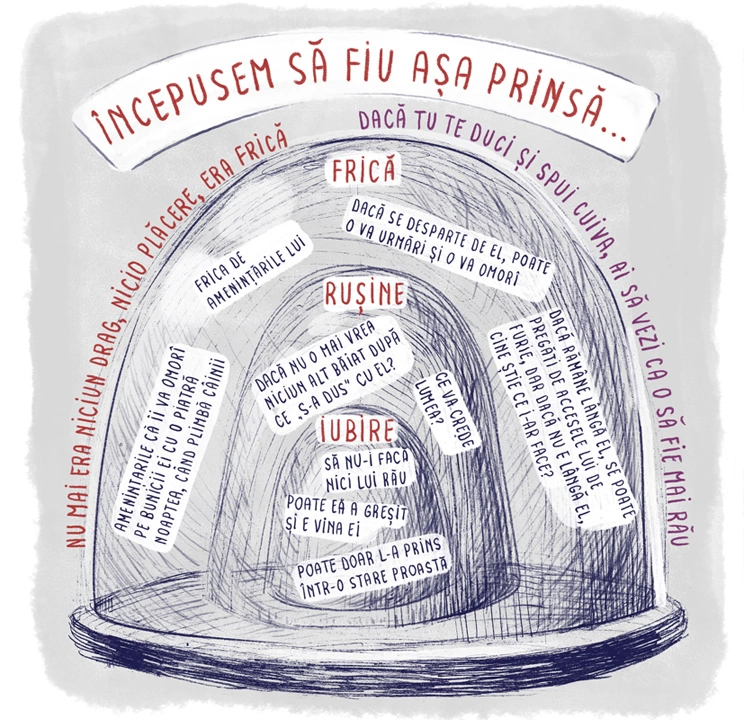 ÎNCEPUSEM SĂ FIU AȘA PRINSĂ...
NU MAI ERA NICIUN DRAG, NICIO PLĂCERE, ERA FRICĂ
DACĂ TU TE DUCI ȘI SPUI CUIVA, AI SĂ VEZI CA O SĂ FIE MAI RĂU
FRICĂ
FRICA DE
AMENINȚĂRILE LUI
DACĂ SE DESPARTE DE EL, POATE
O VA URMĂRI ȘI O VA OMORÎ
AMENINȚĂRILE CĂ ÎI VA OMORÎ
PE BUNICII EI CU O PIATRĂ
NOAPTEA, CÂND PLIMBĂ CÂINII
DACĂ RĂMÂNE LÂNGĂ EL, SE POATE
PREGĂTI DE ACCESELE LUI DE
FURIE, DAR DACĂ NU E LÂNGĂ EL,
CINE ȘTIE CE I-AR FACE?
RUȘINE
DACĂ NU O MAI VREA
NICIUN ALT BĂIAT DUPĂ
CE „S-A DUS” CU EL?
CE VA CREDE
LUMEA?
IUBIRE
SĂ NU-I FACĂ
NICI LUI RĂU
POATE EA A GREȘIT
ȘI E VINA EI
POATE DOAR L-A PRINS
ÎNTR-O STARE PROASTĂ